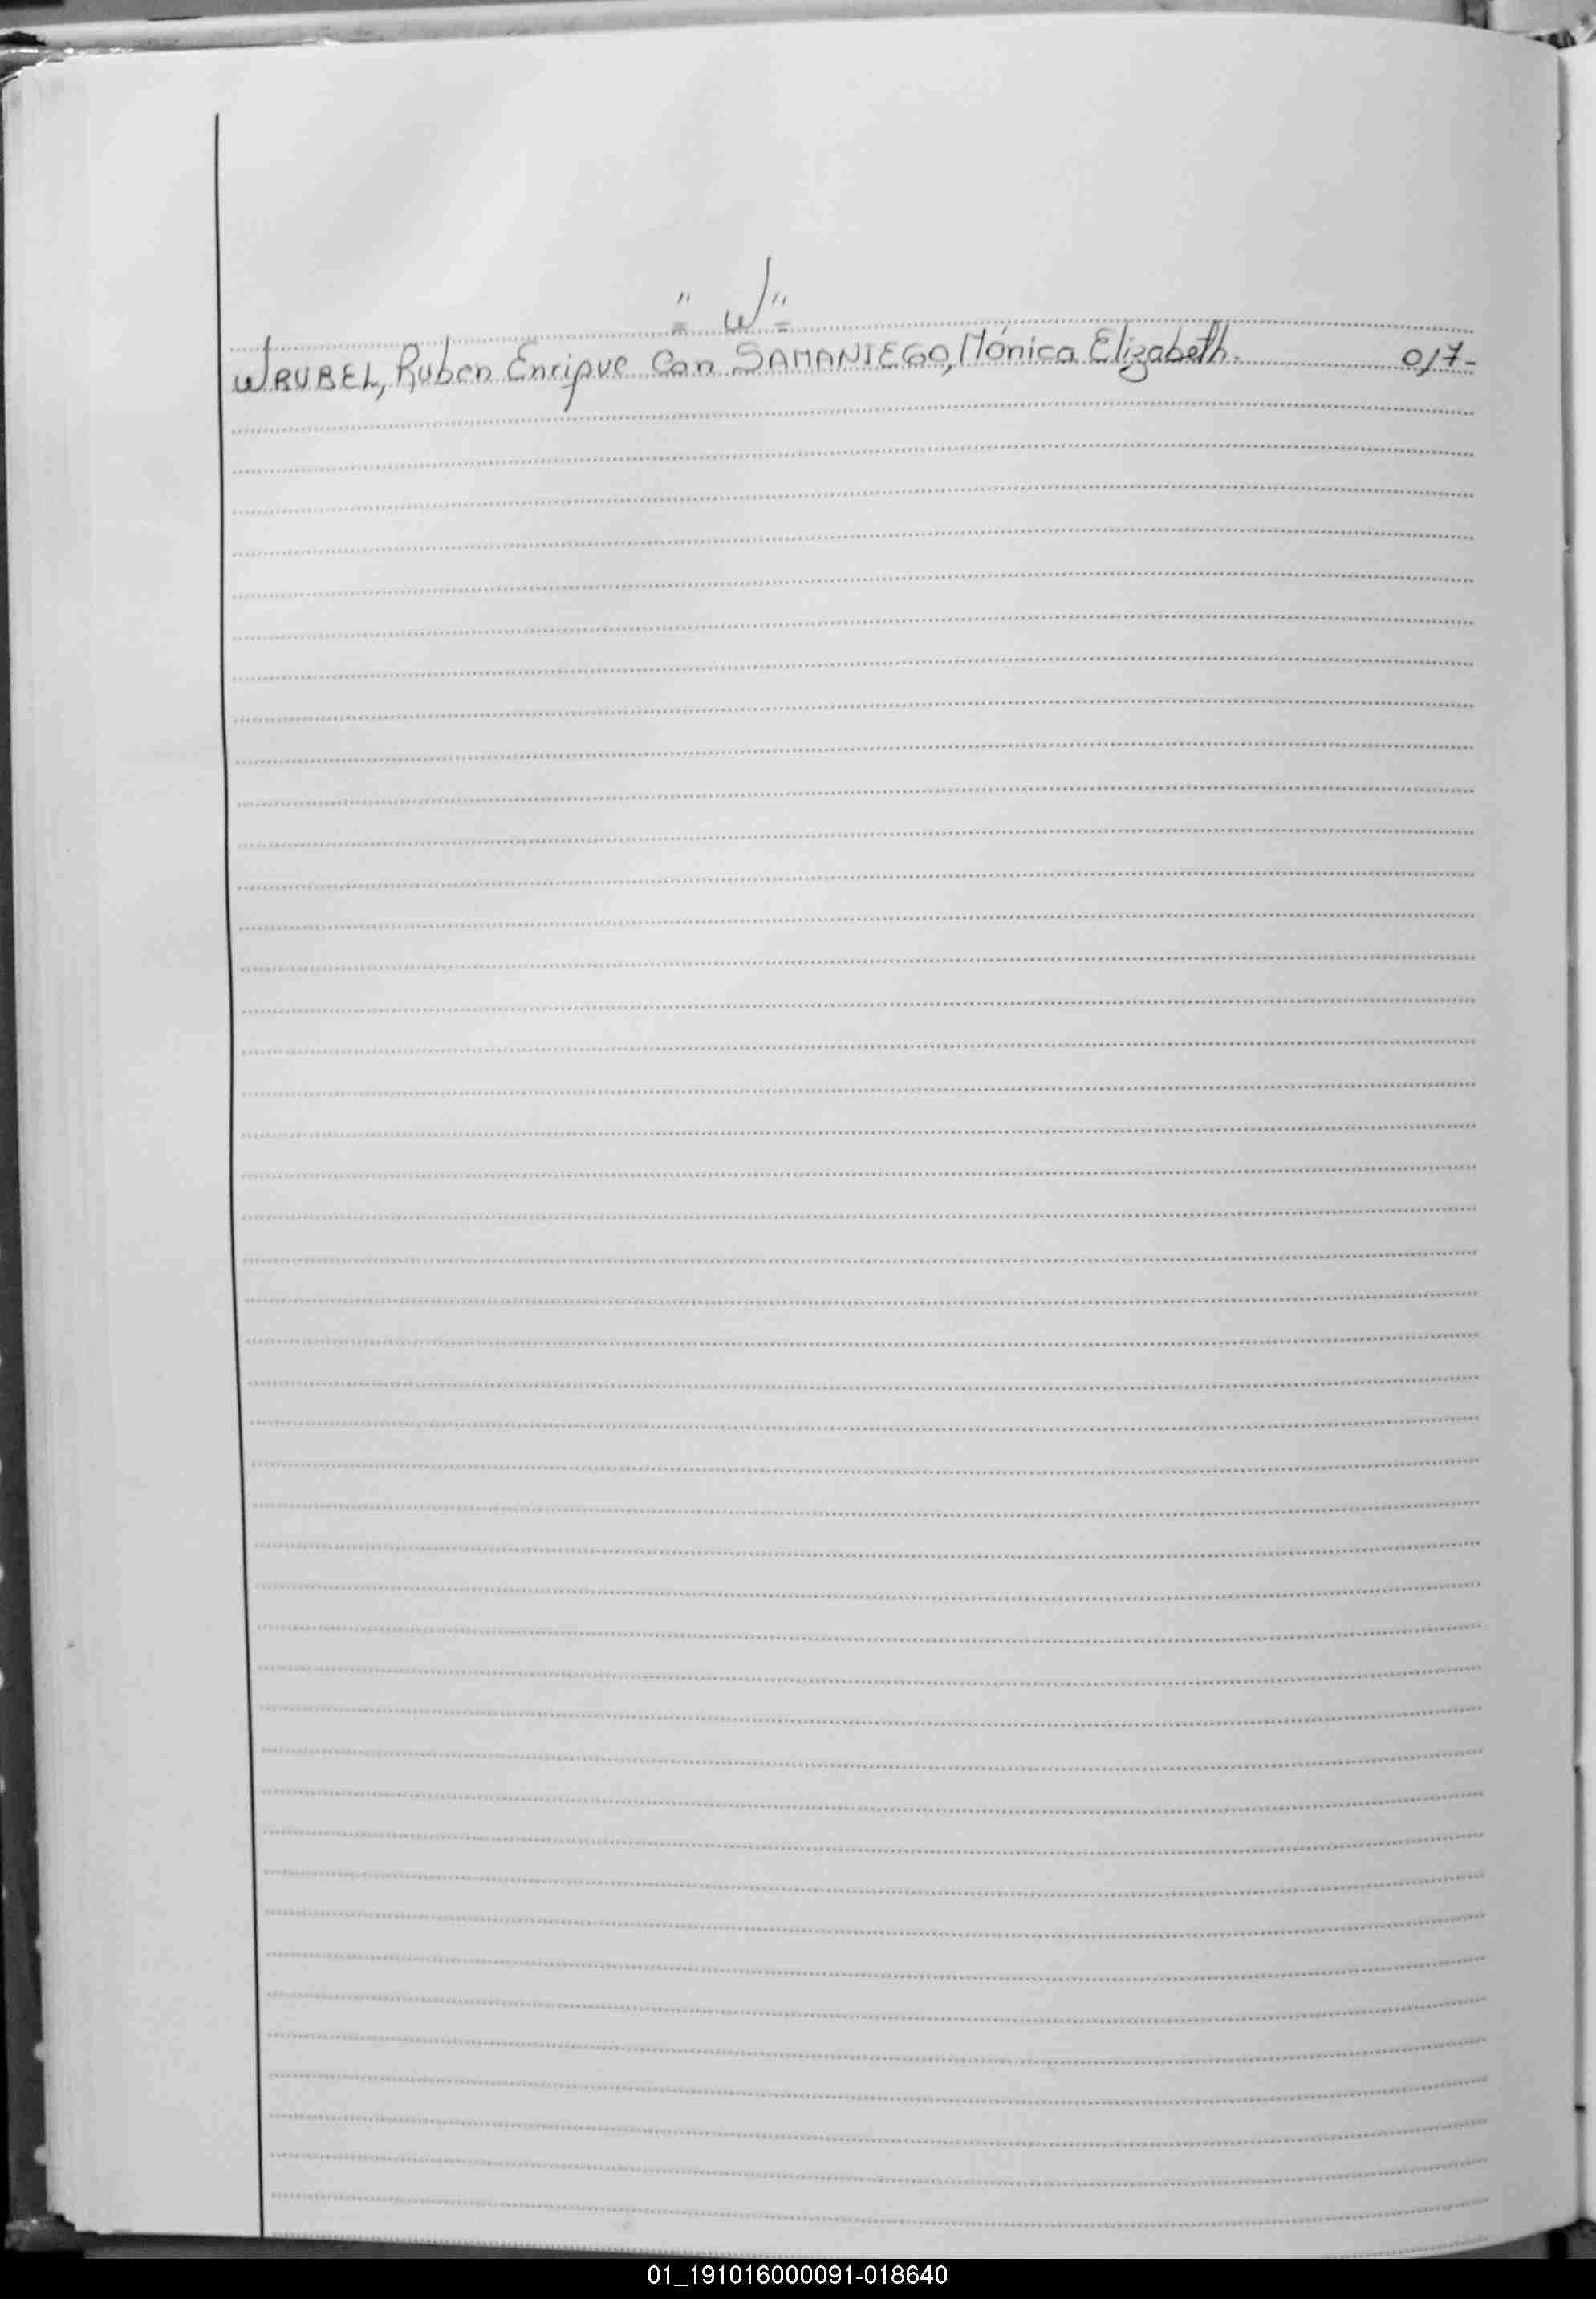 " W "
WRUBEL, Ruben Enrique con SAMANIEGO, Mónica Elizabeth. 017-
01_191016000091-018640